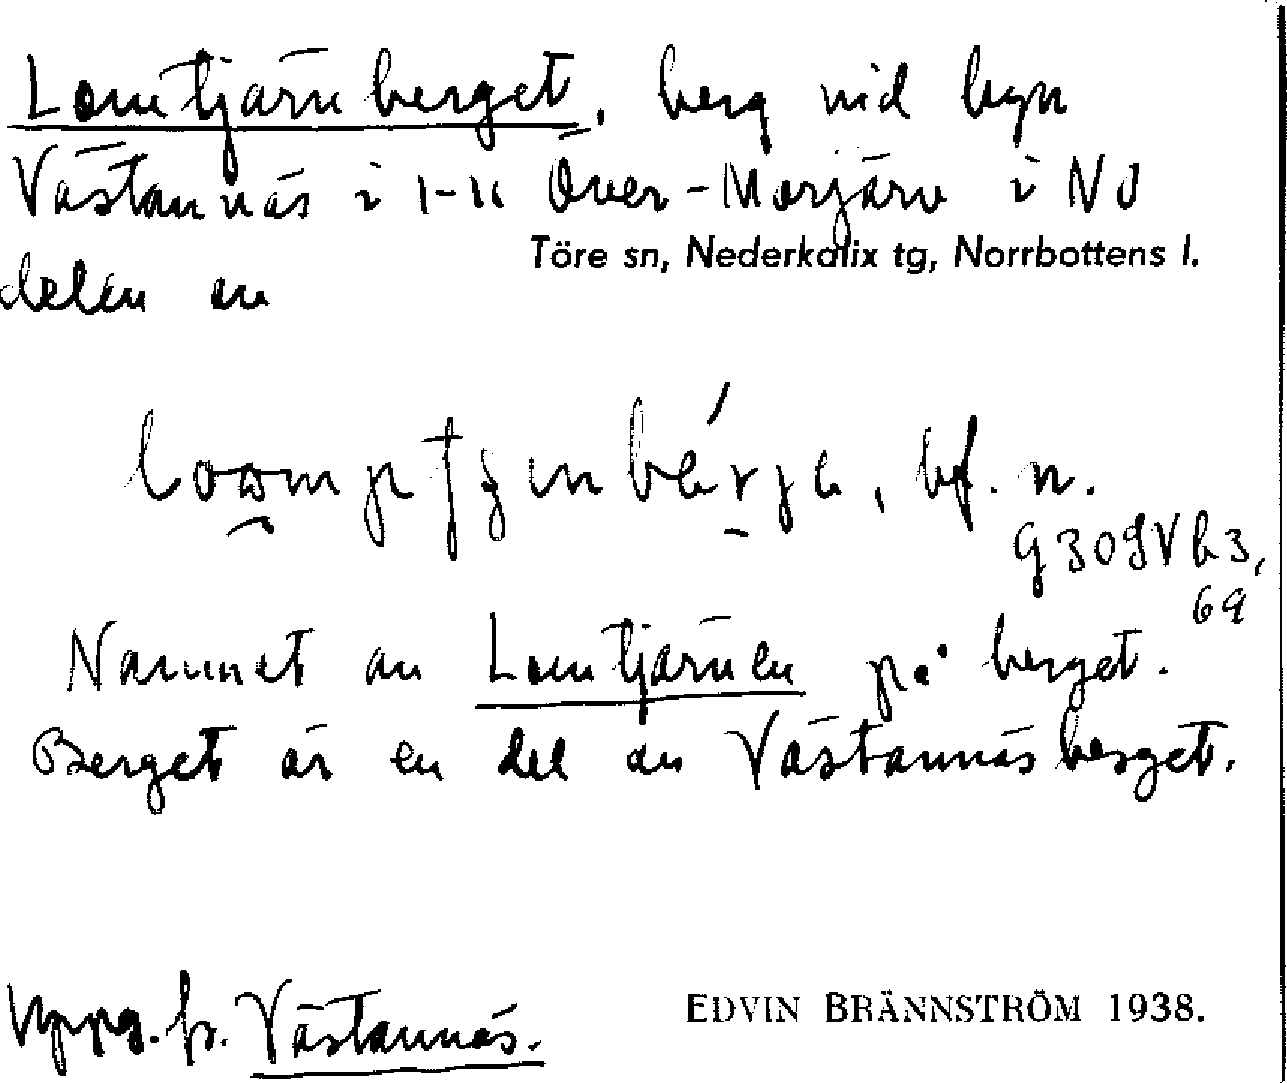 Lomtjärnberget, berg vid byn
Västannäs i 1-n Över-Morjärv i NO
Töre sn, Nederkalix tg, Norrbottens l.
delen av
bf. n.
G 309 V b 3,
69
Namnet av Lomtjärnen på berget.
Berget är en del av Västannäsberget.
Uppg. fr. Västannäs.
EDVIN BRÄNNSTRÖM 1938.